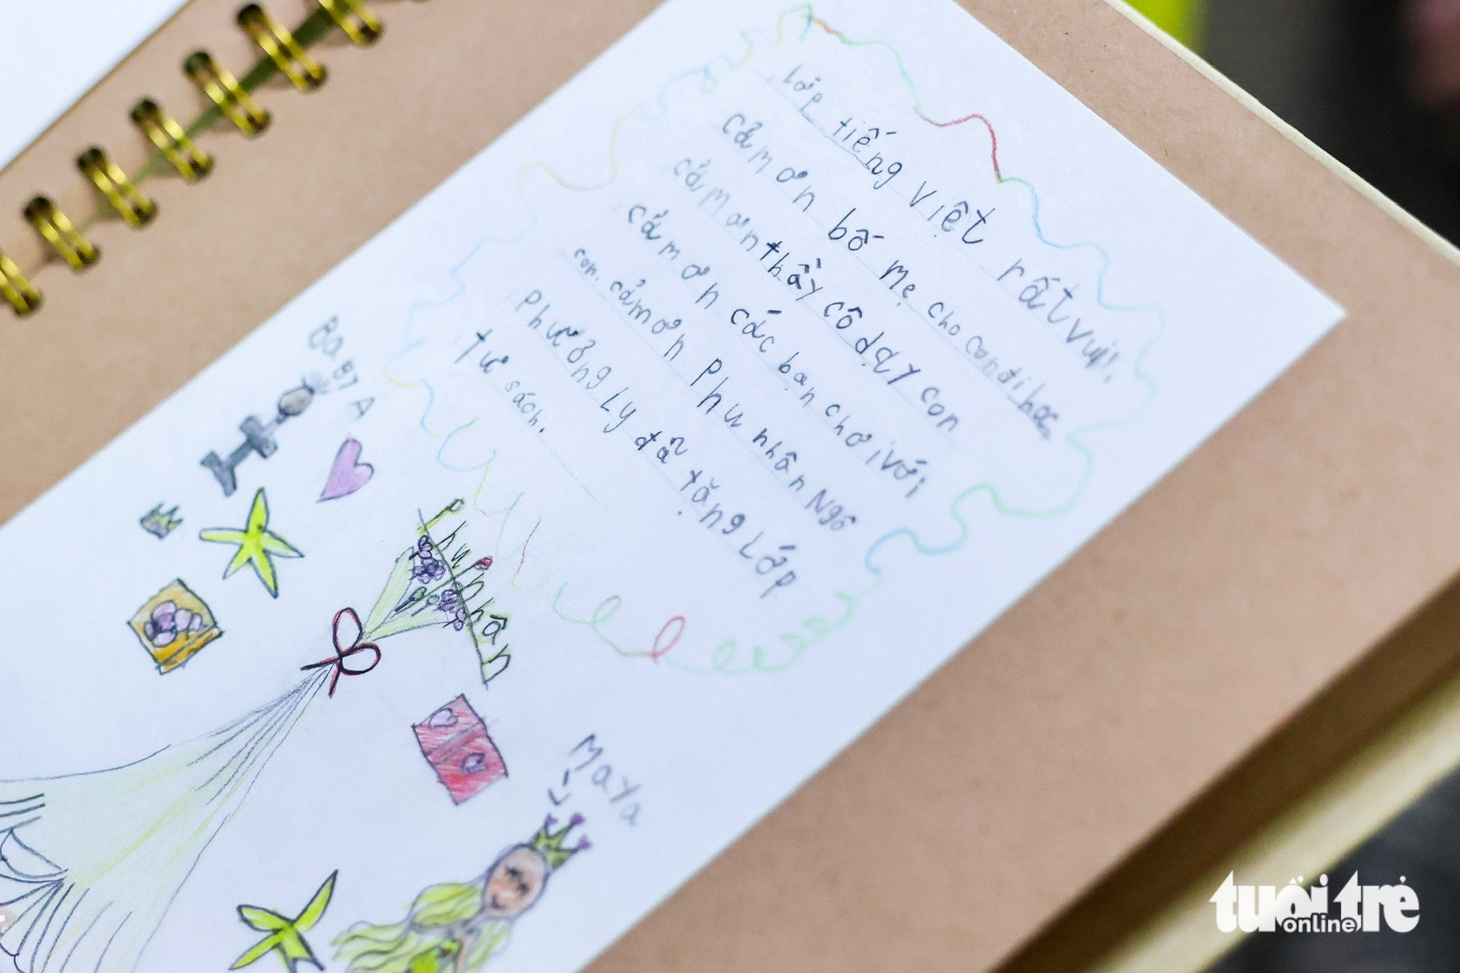 Lớp tiếng việt rất vui!.
cảm ơn bố mẹ cho con đi học
cảm ơn thầy cô dạy con
cảm ơn các bạn chơi với
con. cảm ơn Phu nhân Ngô
Phương Ly đã tặng Lớp
tư sách.
BaBY A
Phu nhân
Maya
tuổi trẻ
online